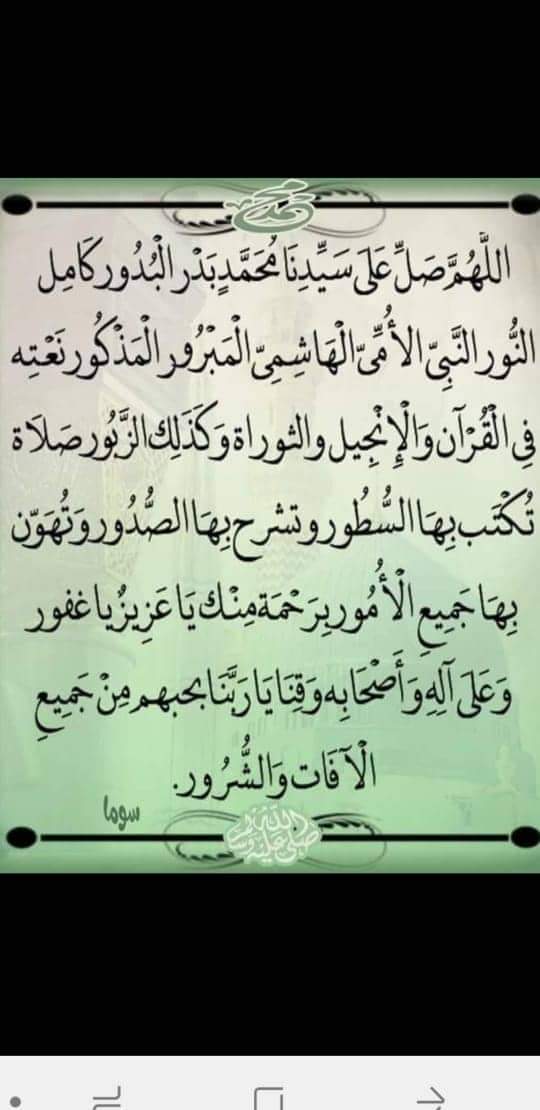 محمد
اللَّهُمَّ صَلِّ عَلَى سَيِّدِنَا مُحَمَّدٍ بَدْر الْبُدُور كَامِل
النُّور النَّبِيّ الأُمِّيّ الْهَاشِمِيّ الْمَبْرُور الْمَذْكُور نَعْتِه
فِي الْقُرْآن وَالْإِنْجِيل والثوراة وَكَذَلِك الزَّبُور صَلَاة
تُكْتَب بِهَا السُّطُور وتشرح بِهَا الصُّدُور وَتُهَوّن
بِهَا جَمِيعِ الْأُمُور بِرَحْمَة مِنْك يَا عَزِيزٌ يا غفور
وَعَلَى آلِهِ وَأَصْحَابِه وَقِنَا يَا رَبَّنَا بحبهم مِنْ جَمِيعِ
الْآفَات وَالشُّرُور.
سوما
صلى الله عليه وسلم